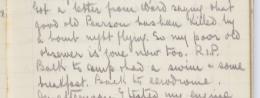 Got a letter from Ward saying that
good old Pearson has been killed by
a bomb night flying. So my poor old
observer is gone now too. R.I.P.
Back to camp had a swim & some
breakfast. Back to aerodrome.
In afternoon I tested my engine